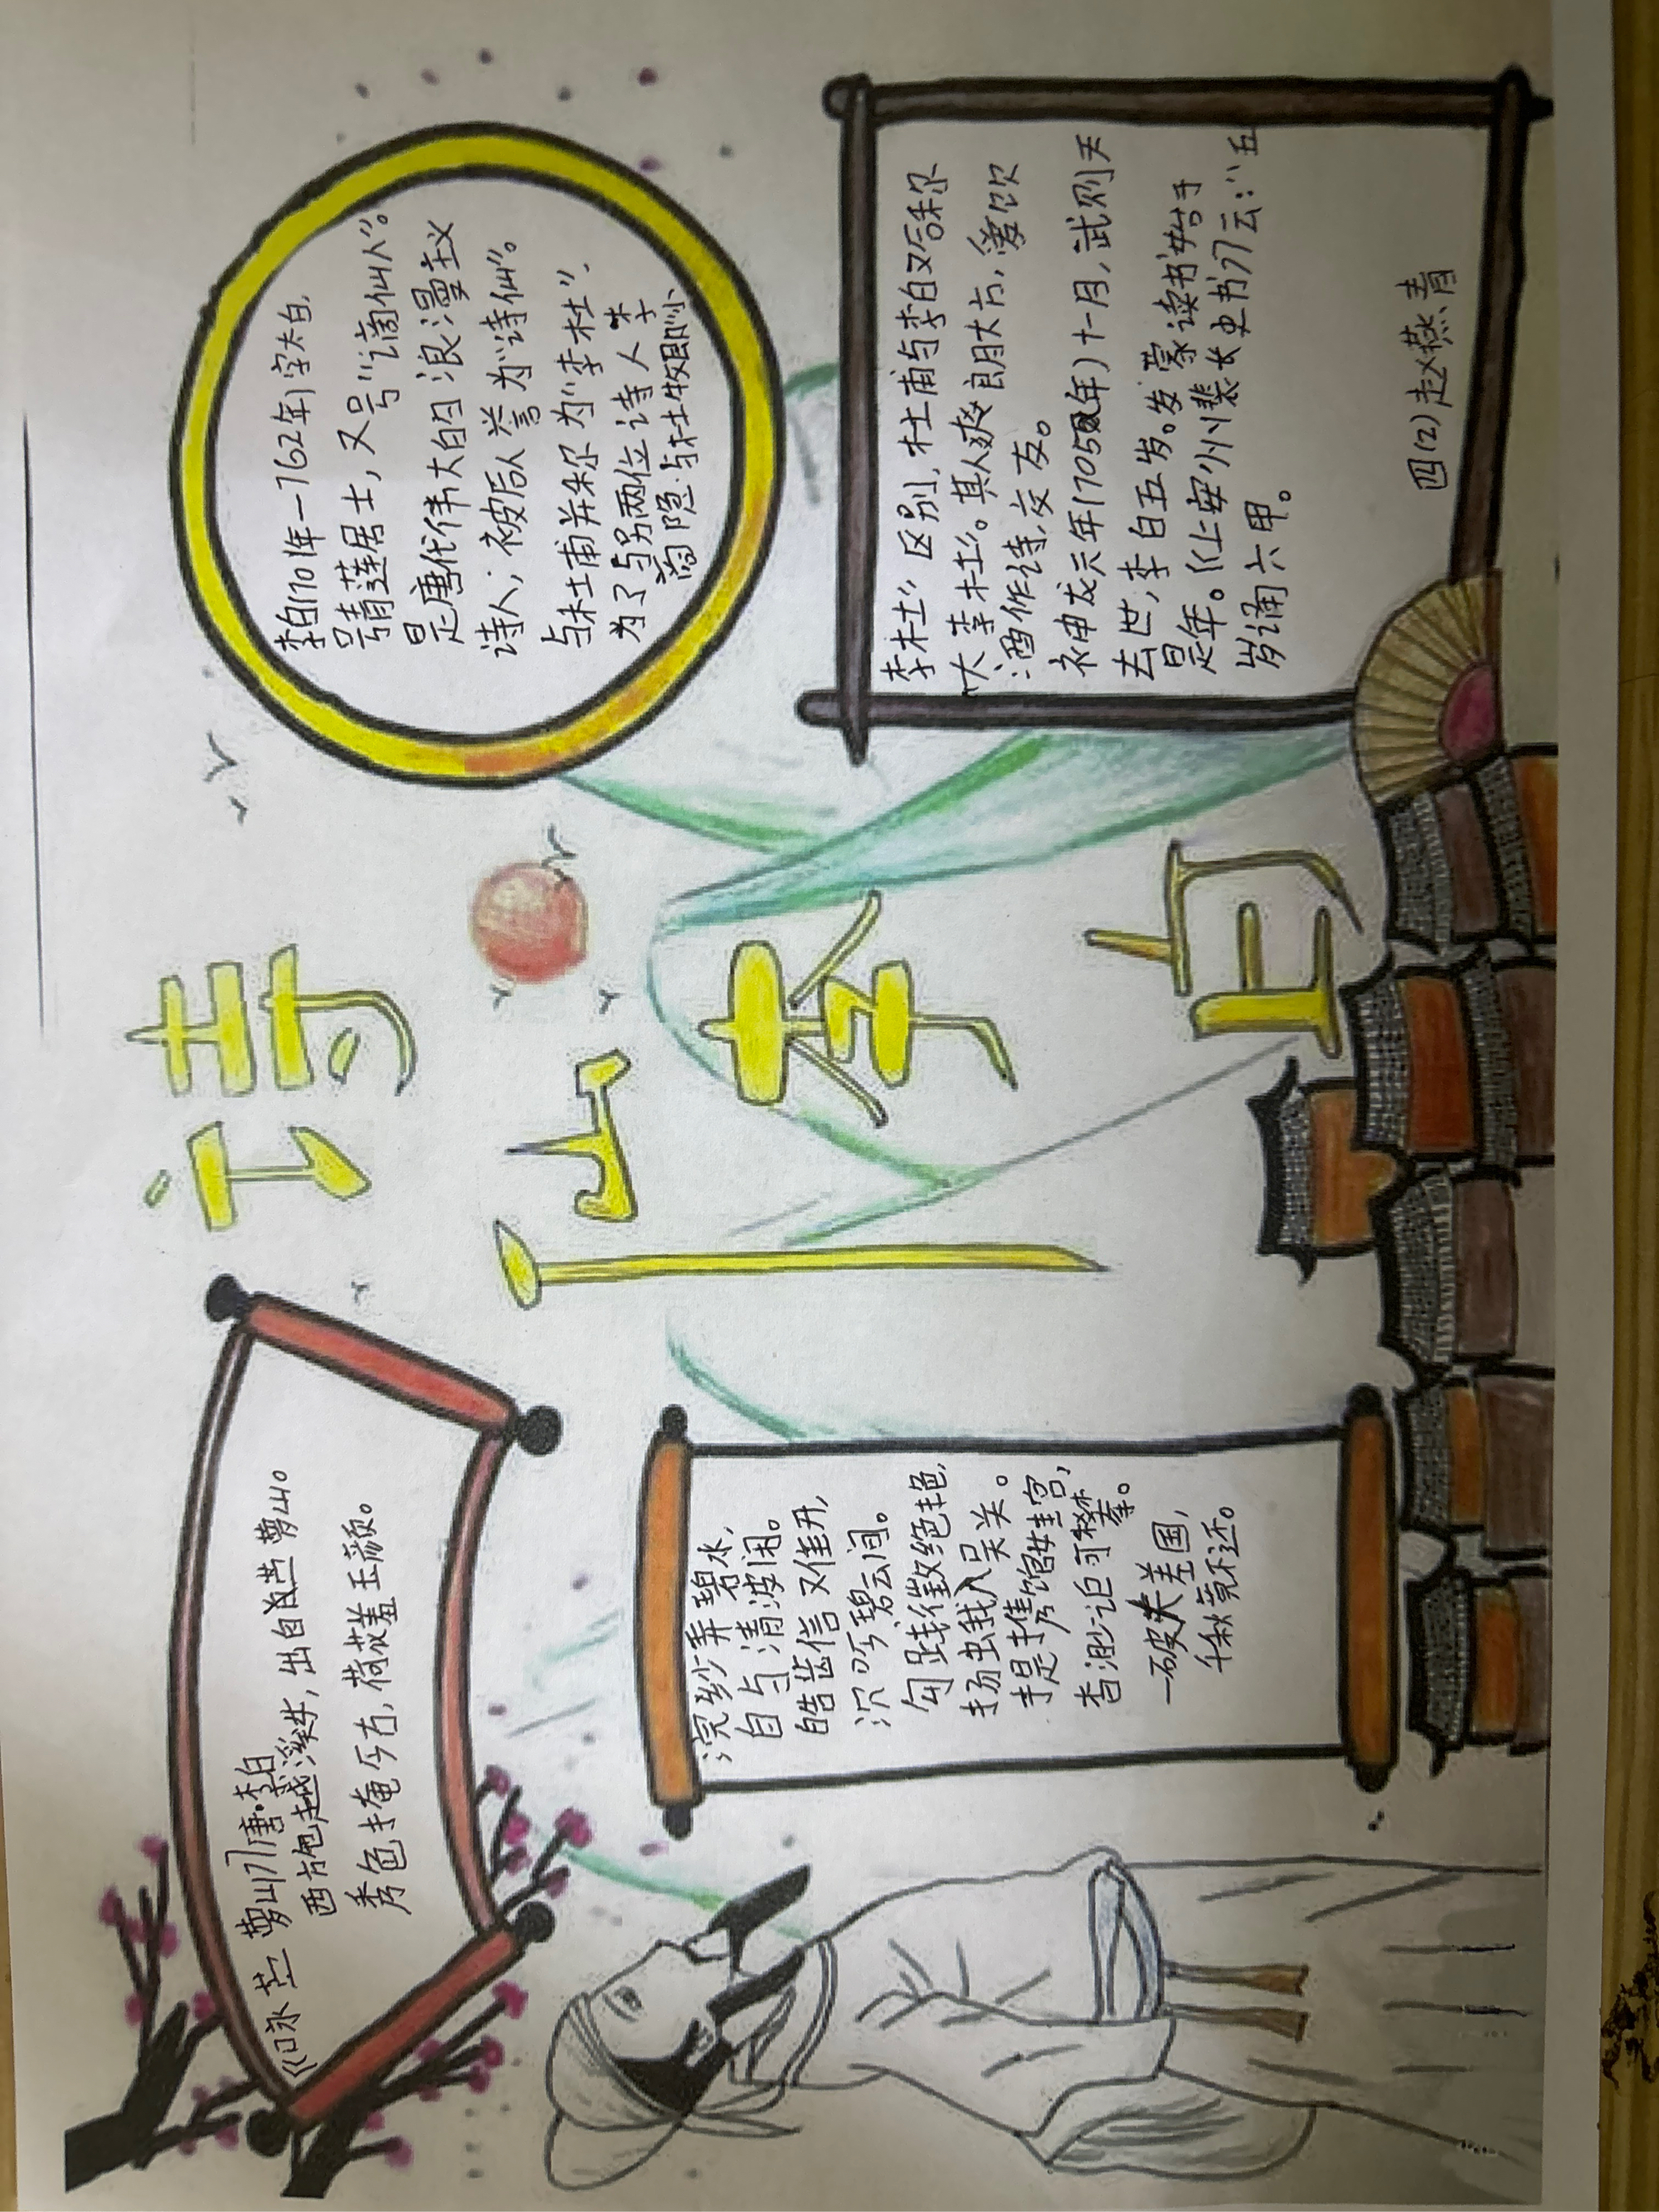 诗
仙
李
白
《咏苎萝山》唐·李白
西施越溪女,出自苎萝山。
秀色掩今古,荷花羞玉颜。
浣纱弄碧水,
自与清波闲。
皓齿信难开,
沉吟碧云间。
勾践徵绝艳,
扬蛾入吴关。
提携馆娃宫,
杳渺讵可攀。
一破夫差国,
千秋竟不还。
李白(701年-762年)字太白,
号青莲居士,又号“谪仙人”。
是唐代伟大的浪漫主义
诗人;被后人誉为“诗仙”。
与杜甫并称为“李杜”,
为了与另两位诗人李
商隐与杜牧即“小
李杜”区别,杜甫与李白又合称
“大李杜”。其人爽朗大方,爱饮
酒作诗,交友。
神龙元年(705年)十一月,武则天
去世,李白五岁。发蒙读书始于
是年。《上安州裴长史书》云:“五
岁诵六甲。
四(2)赵燕青